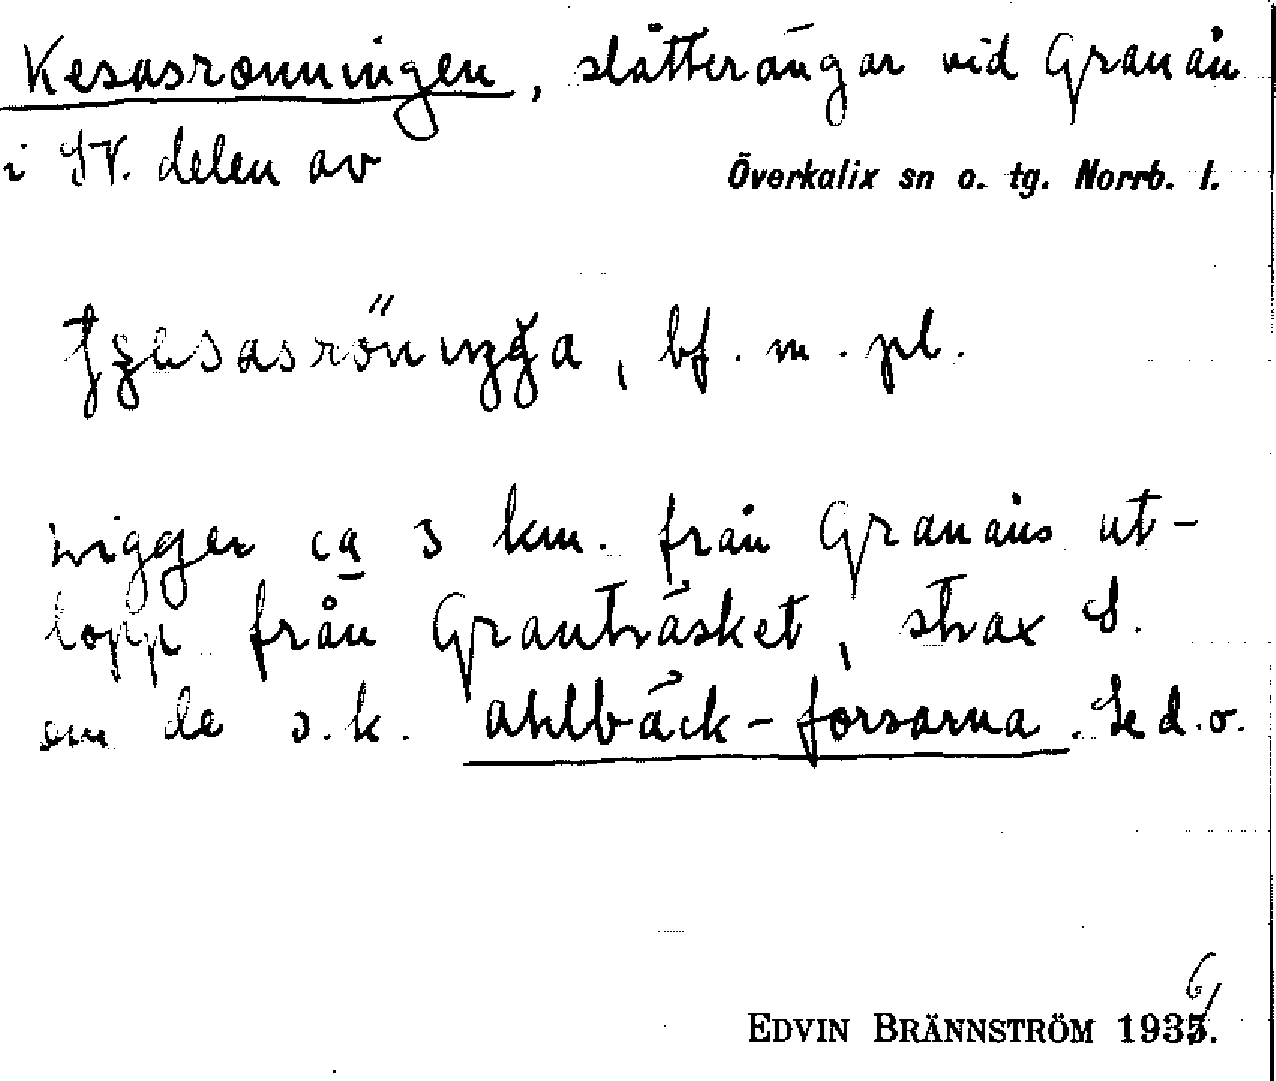 Kesasrönningen, slåtterängar vid Granån
i SV. delen av Överkalix sn o. tg. Norrb. l.
bf. m. pl.
Ligger ca 3 km. från Granåns ut-
lopp från Granträsket, strax S.
om de s.k. Ahlbäck-forsarna. Se d.o.
EDVIN BRÄNNSTRÖM 1936.